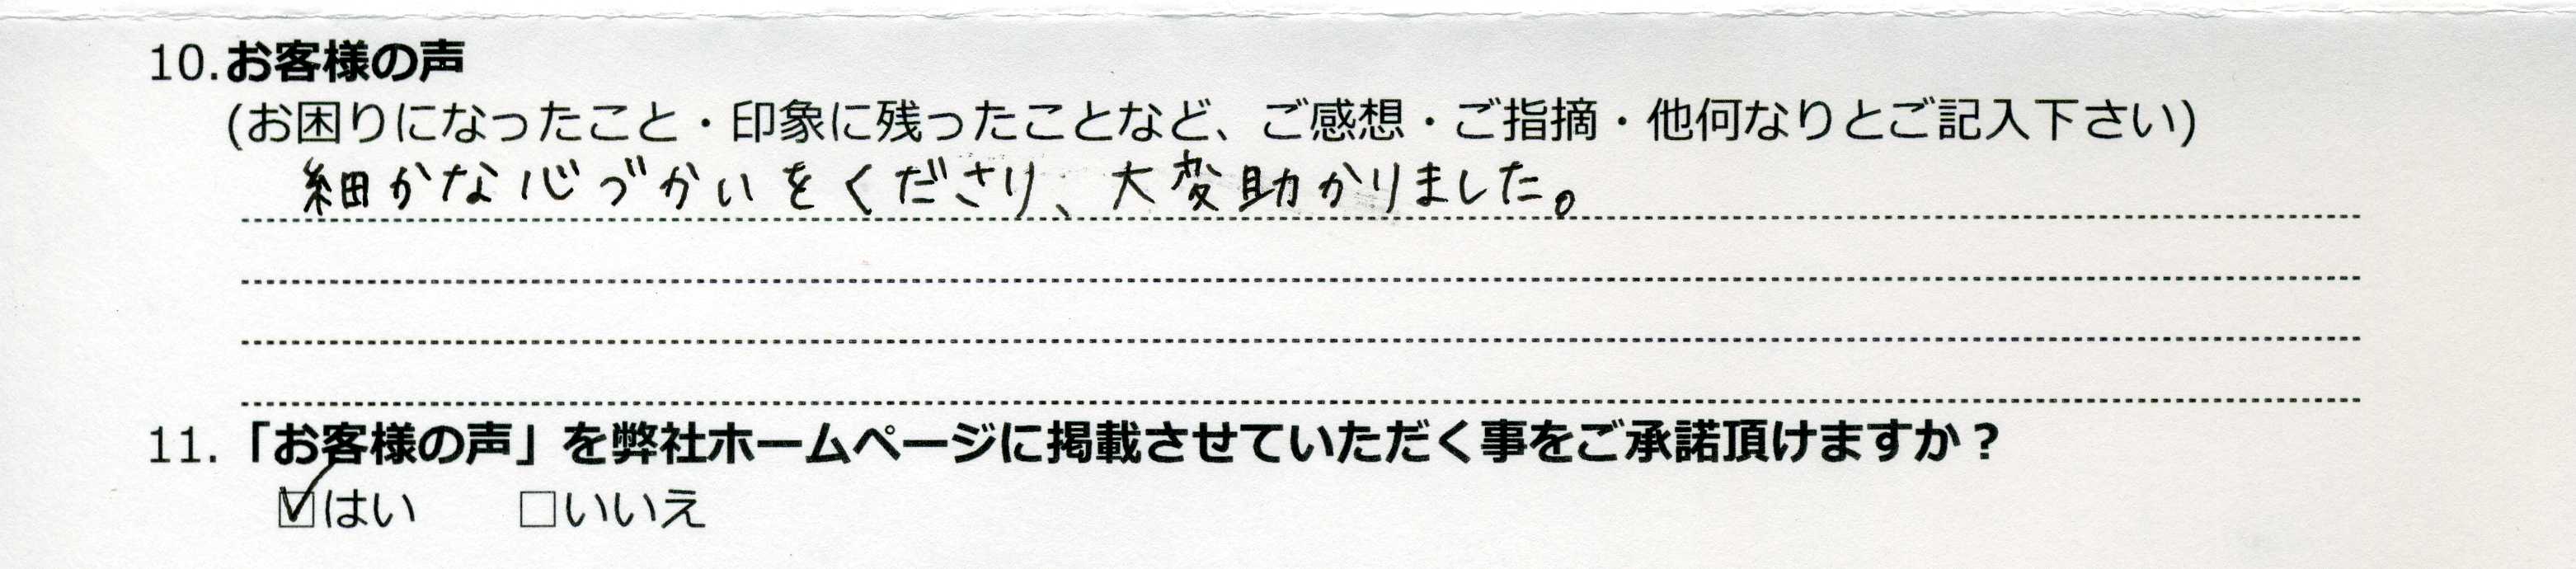 10.お客様の声
(お困りになったこと・印象に残ったことなど、ご感想・ご指摘・他何なりとご記入下さい)
細かな心づかいをくださり、大変助かりました。
11.「お客様の声」を弊社ホームページに掲載させていただく事をご承諾頂けますか？
☑はい　□いいえ